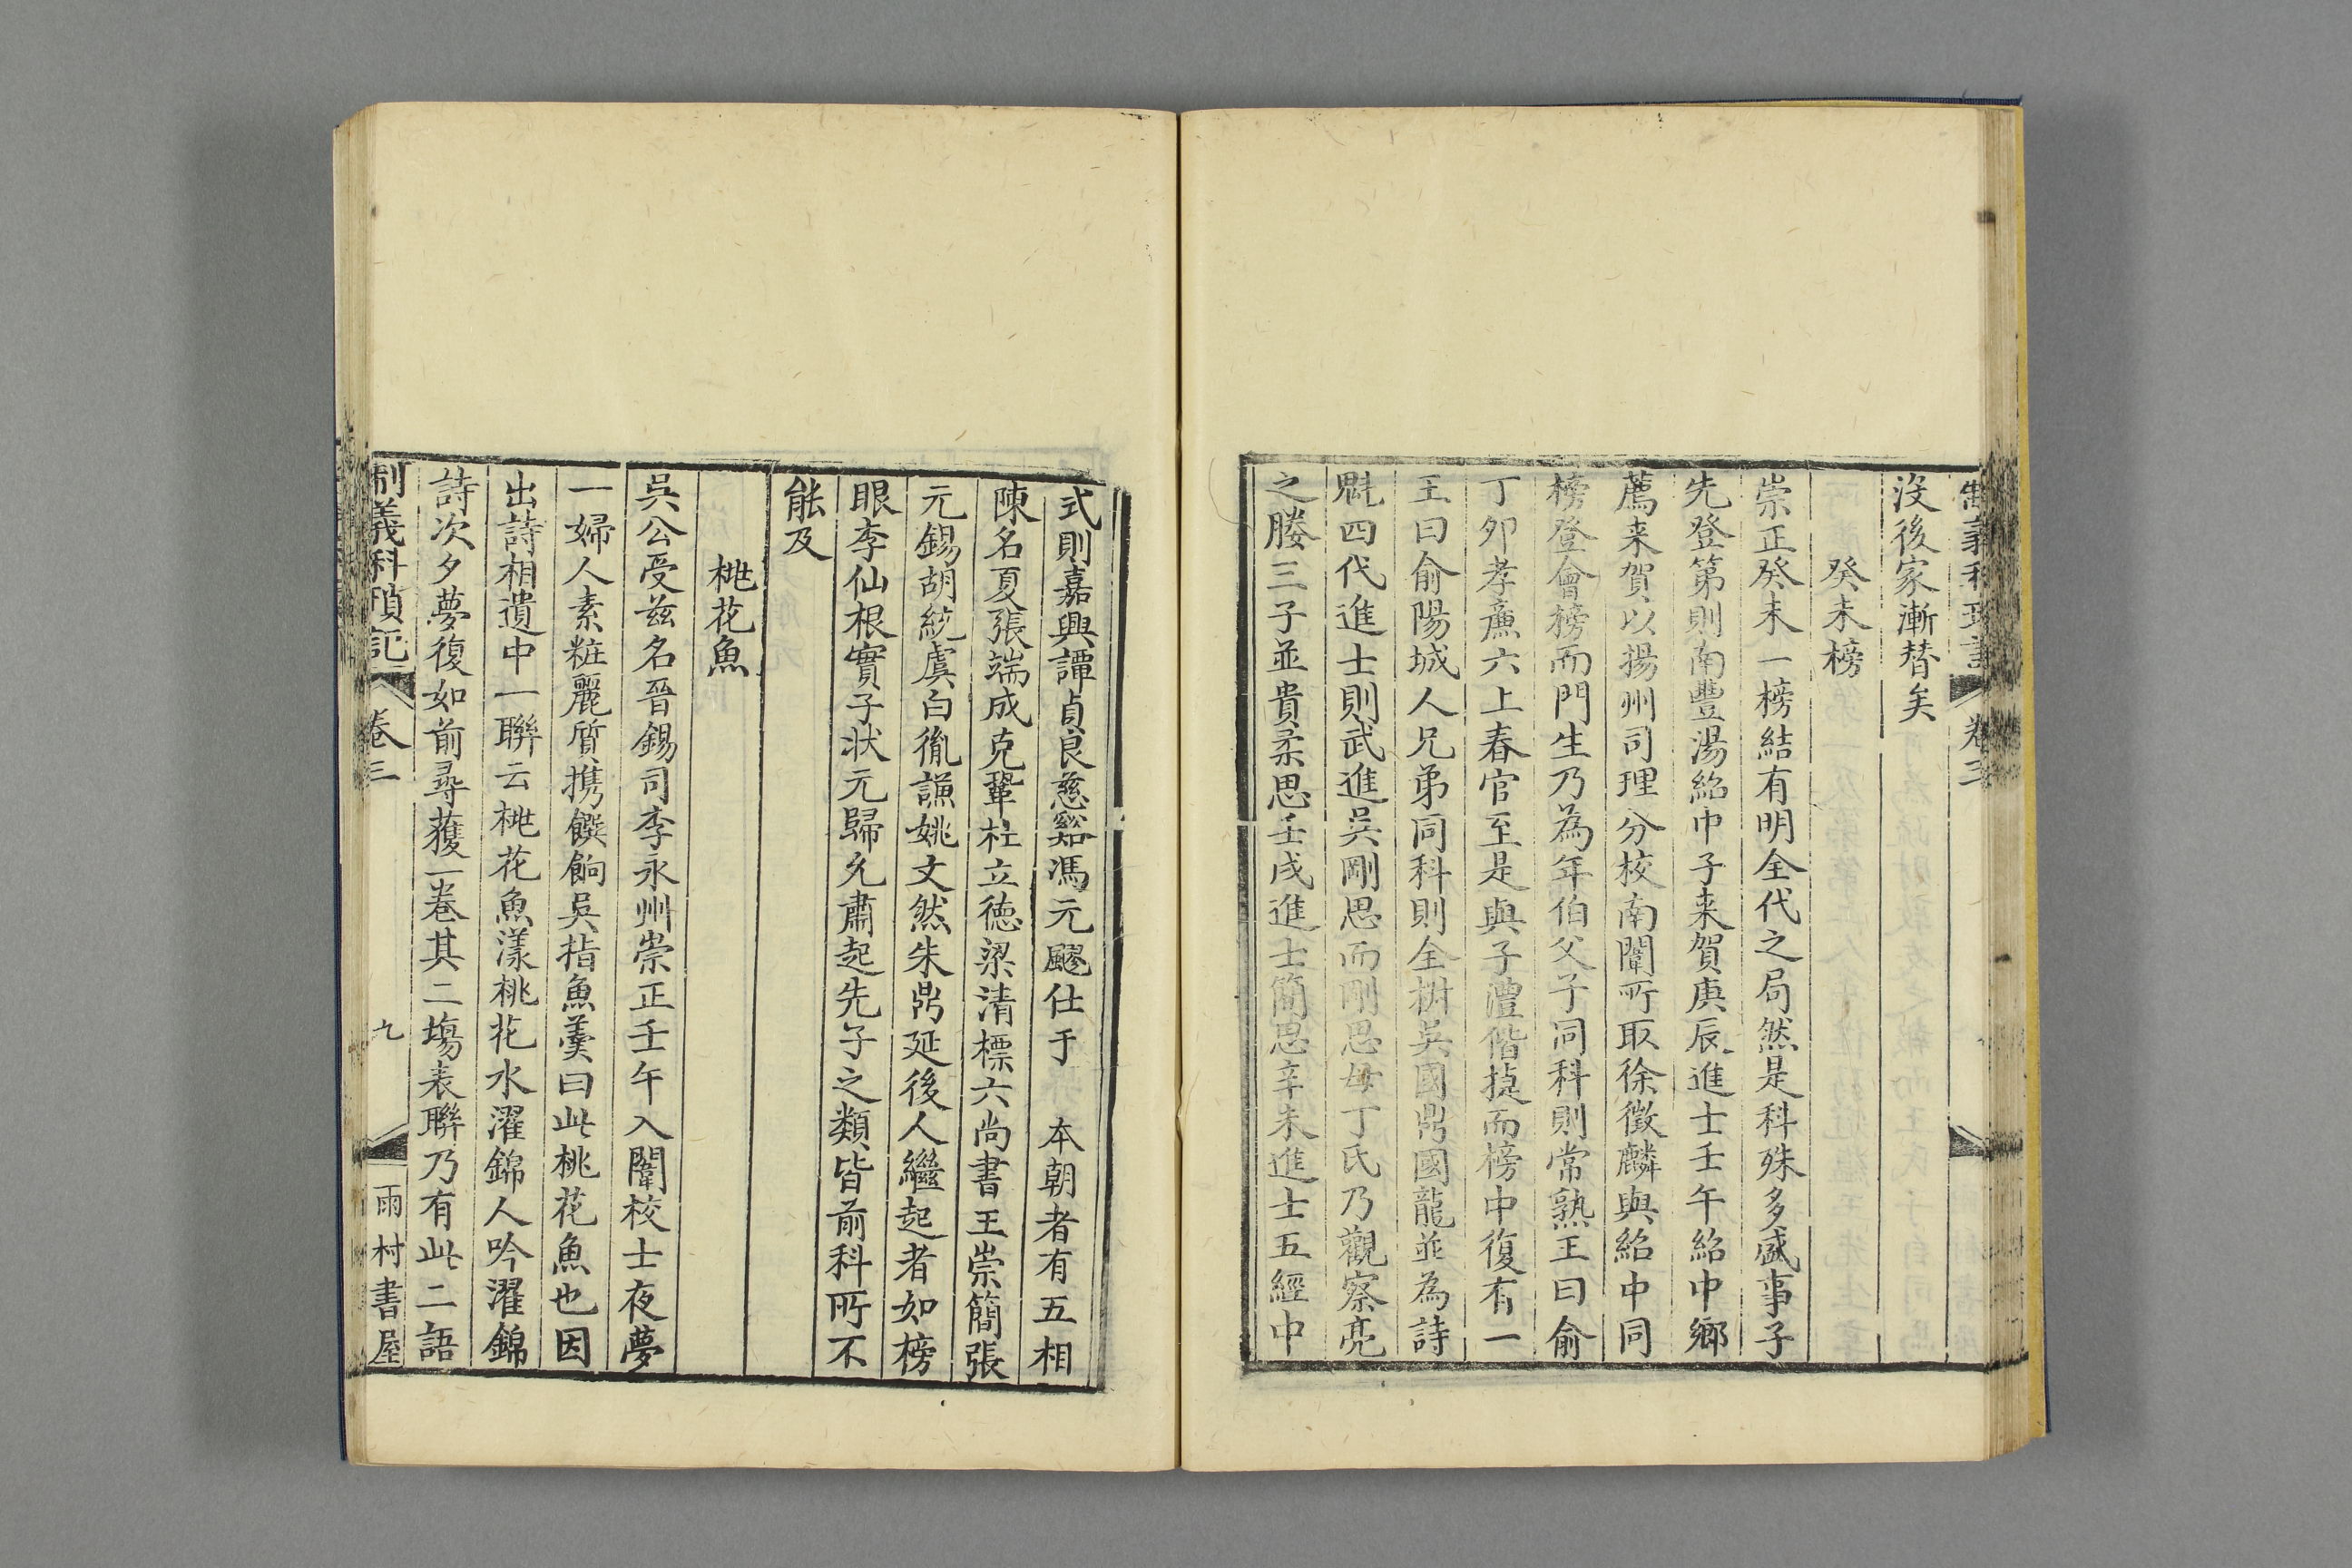 制義科瑣記 卷三
沒後家漸替矣
癸未榜
崇正癸未一榜結有明全代之局然是科殊多盛事子
先登第則南豐湯紹中子来賀庚辰進士壬午紹中鄉
薦来賀以揚州司理分校南闈所取徐徵麟與紹中同
榜登會榜而門生乃為年伯父子同科則常熟王曰俞
丁夘孝亷六上春官至是與子澧偕㨗而榜中復有一
王曰俞陽城人兄弟同科則全椒吳國鼎國龍並為詩
魁四代進士則武進吳剛思而剛思母丁氏乃觀察亮
之媵三子並貴柔思壬戌進士簡思辛未進士五經中
式則嘉興譚貞良慈谿馮元颺仕于 本朝者有五相
陳名夏張端成克鞏杜立德梁清標六尚書王崇簡張
元錫胡統虞白𦙍謙姚文然朱鼎延後人繼起者如榜
眼李仙根實子狀元歸允肅起先子之類皆前科所不
能及
桃花魚
吳公受兹名晋錫司李永州崇正壬午入闈校士夜夢
一婦人素粧麗質携饌餉吳指魚羮曰此桃花魚也因
出詩相遺中一聯云桃花魚漾桃花水濯錦人吟濯錦
詩次夕夢復如前尋蒦一卷其二塲表聯乃有此二語
制義科瑣記 卷三 九 雨村書屋